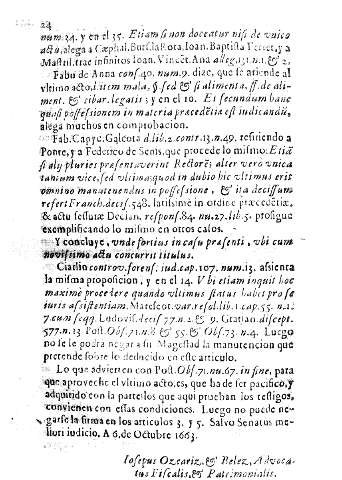 24
num.34. y en el 35. Etiam si non doceatur nisi de vnico
actu, alega a Cæphal. Burs. la Rota, Ioan. Baptista Ferret, y a
Mastril. trae infinitos Ioan. Vincēt. Ana alleg. 131. n. 1. & 2.
Fabio de Anna cons. 40. num. 9. dize, que se atiende al
vltimo acto, l. item mala, §. sed & si alimenta, ff. de ali-
ment. & cibar. legatis; y en el 10. Et secundum hanc
quasi possessionem in materia præcedētia est iudicandū,
alega muchos en comprobacion.
Fab. Capyc. Galeota d. lib. 2. contr. 13. n. 49. refiriendo a
Ponte, y a Federico de Senis, que procede lo mismo: Etiā
si alij plures præsentaverint Rectorē; alter verò vnica
tantum vice, sed vltima quod in dubio hic vltimus erit
omnino manutenendus in possessione, & ita decissum
refert Franch. deciss. 548. latissimè in ordine a præcedētiæ,
& actu sessuræ Decian. respons. 84. nu. 27. lib. 5. prosigue
exemplificando lo mismo en otros casos.
Y concluye, vnde fortius in casu præsenti, vbi cum
novissimo actu concurrit titulus.
Ciarlin controv. forens. iud. cap. 107. num. 13. assienta
la misma proposicion, y en el 14. Vbi etiam inquit hoc
maximè procedere quando vltimus status habet pro se
iuris assistentiam. Marescot. var. resol. lib. 1. cap. 55. n. 12
7. cum seqq. Ludovis. decis. 77. n. 2. & 9. Gratian. discept.
577. n. 13 Post. Obs. 71. n. 8 & 55. & Obs. 73. n. 4. Luego
no se le podrà negar a su Magestad la manutencion que
pretende sobre lo deducido en este articulo.
Lo que advierten con Post. Obs. 71. nu. 67. in fine, para
que aproveche el vltimo acto, es, que ha de ser pacifico, y
adquitido con la parte, los que aqui prueban los testigos,
convienen con essas condiciones. Luego no puede ne-
garse la firma en los articulos 3. y 5. Salvo Senatus me-
liori iudicio. A 6. de Octubre 1663.
Iosepus Ozcariz, & Velez, Advoca-
tus Fiscalis, & Patrimonialis.